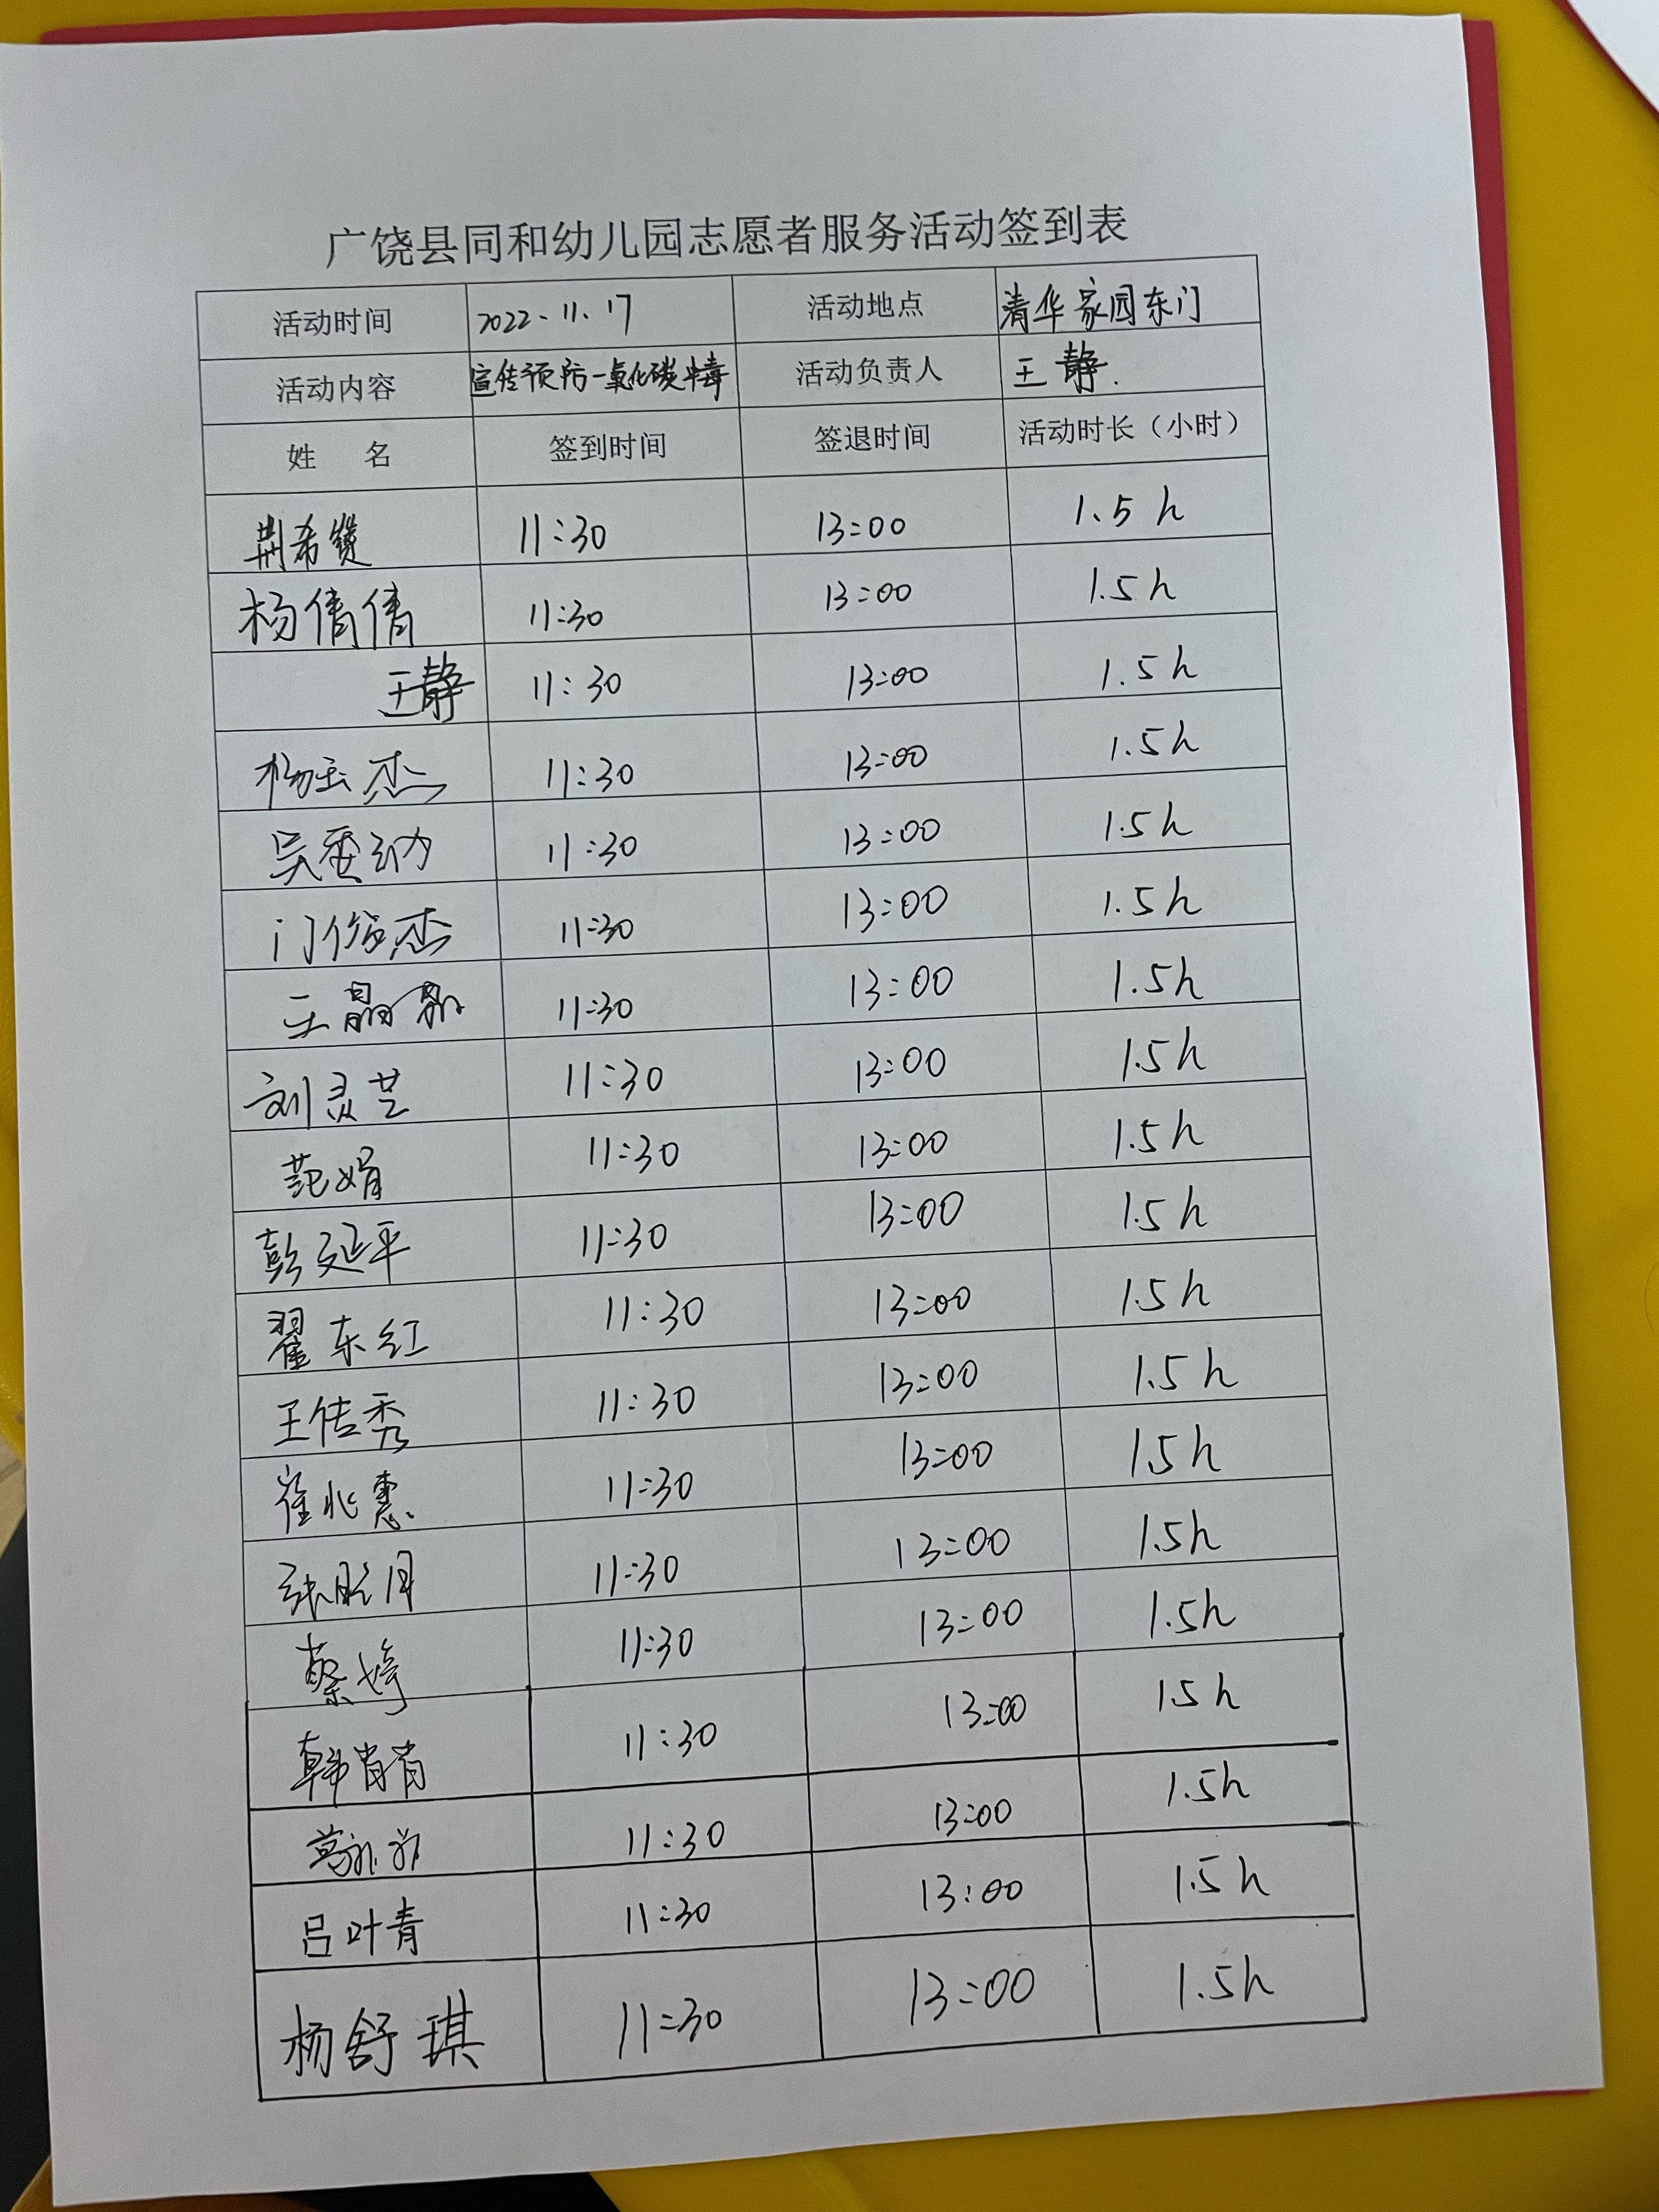 广饶县同和幼儿园志愿者服务活动签到表
活动时间 2022.11.17 活动地点 清华家园东门
活动内容 宣传预防一氧化碳中毒 活动负责人 王静.
姓 名 签到时间 签退时间 活动时长（小时）
荆希 11:30 13:00 1.5h
杨倩倩 11:30 13:00 1.5h
王静 11:30 13:00 1.5h
杨玉杰 11:30 13:00 1.5h
吴 11:30 13:00 1.5h
门俊杰 11:30 13:00 1.5h
王晶 11:30 13:00 1.5h
刘灵芝 11:30 13:00 1.5h
范娟 11:30 13:00 1.5h
彭延平 11:30 13:00 1.5h
翟东红 11:30 13:00 1.5h
王传秀 11:30 13:00 1.5h
崔兆惠 11:30 13:00 1.5h
张 月 11:30 13:00 1.5h
蔡婷 11:30 13:00 1.5h
韩肖肖 11:30 13:00 1.5h
葛 11:30 13:00 1.5h
吕叶青 11:30 13:00 1.5h
杨舒琪 11:30 13:00 1.5h